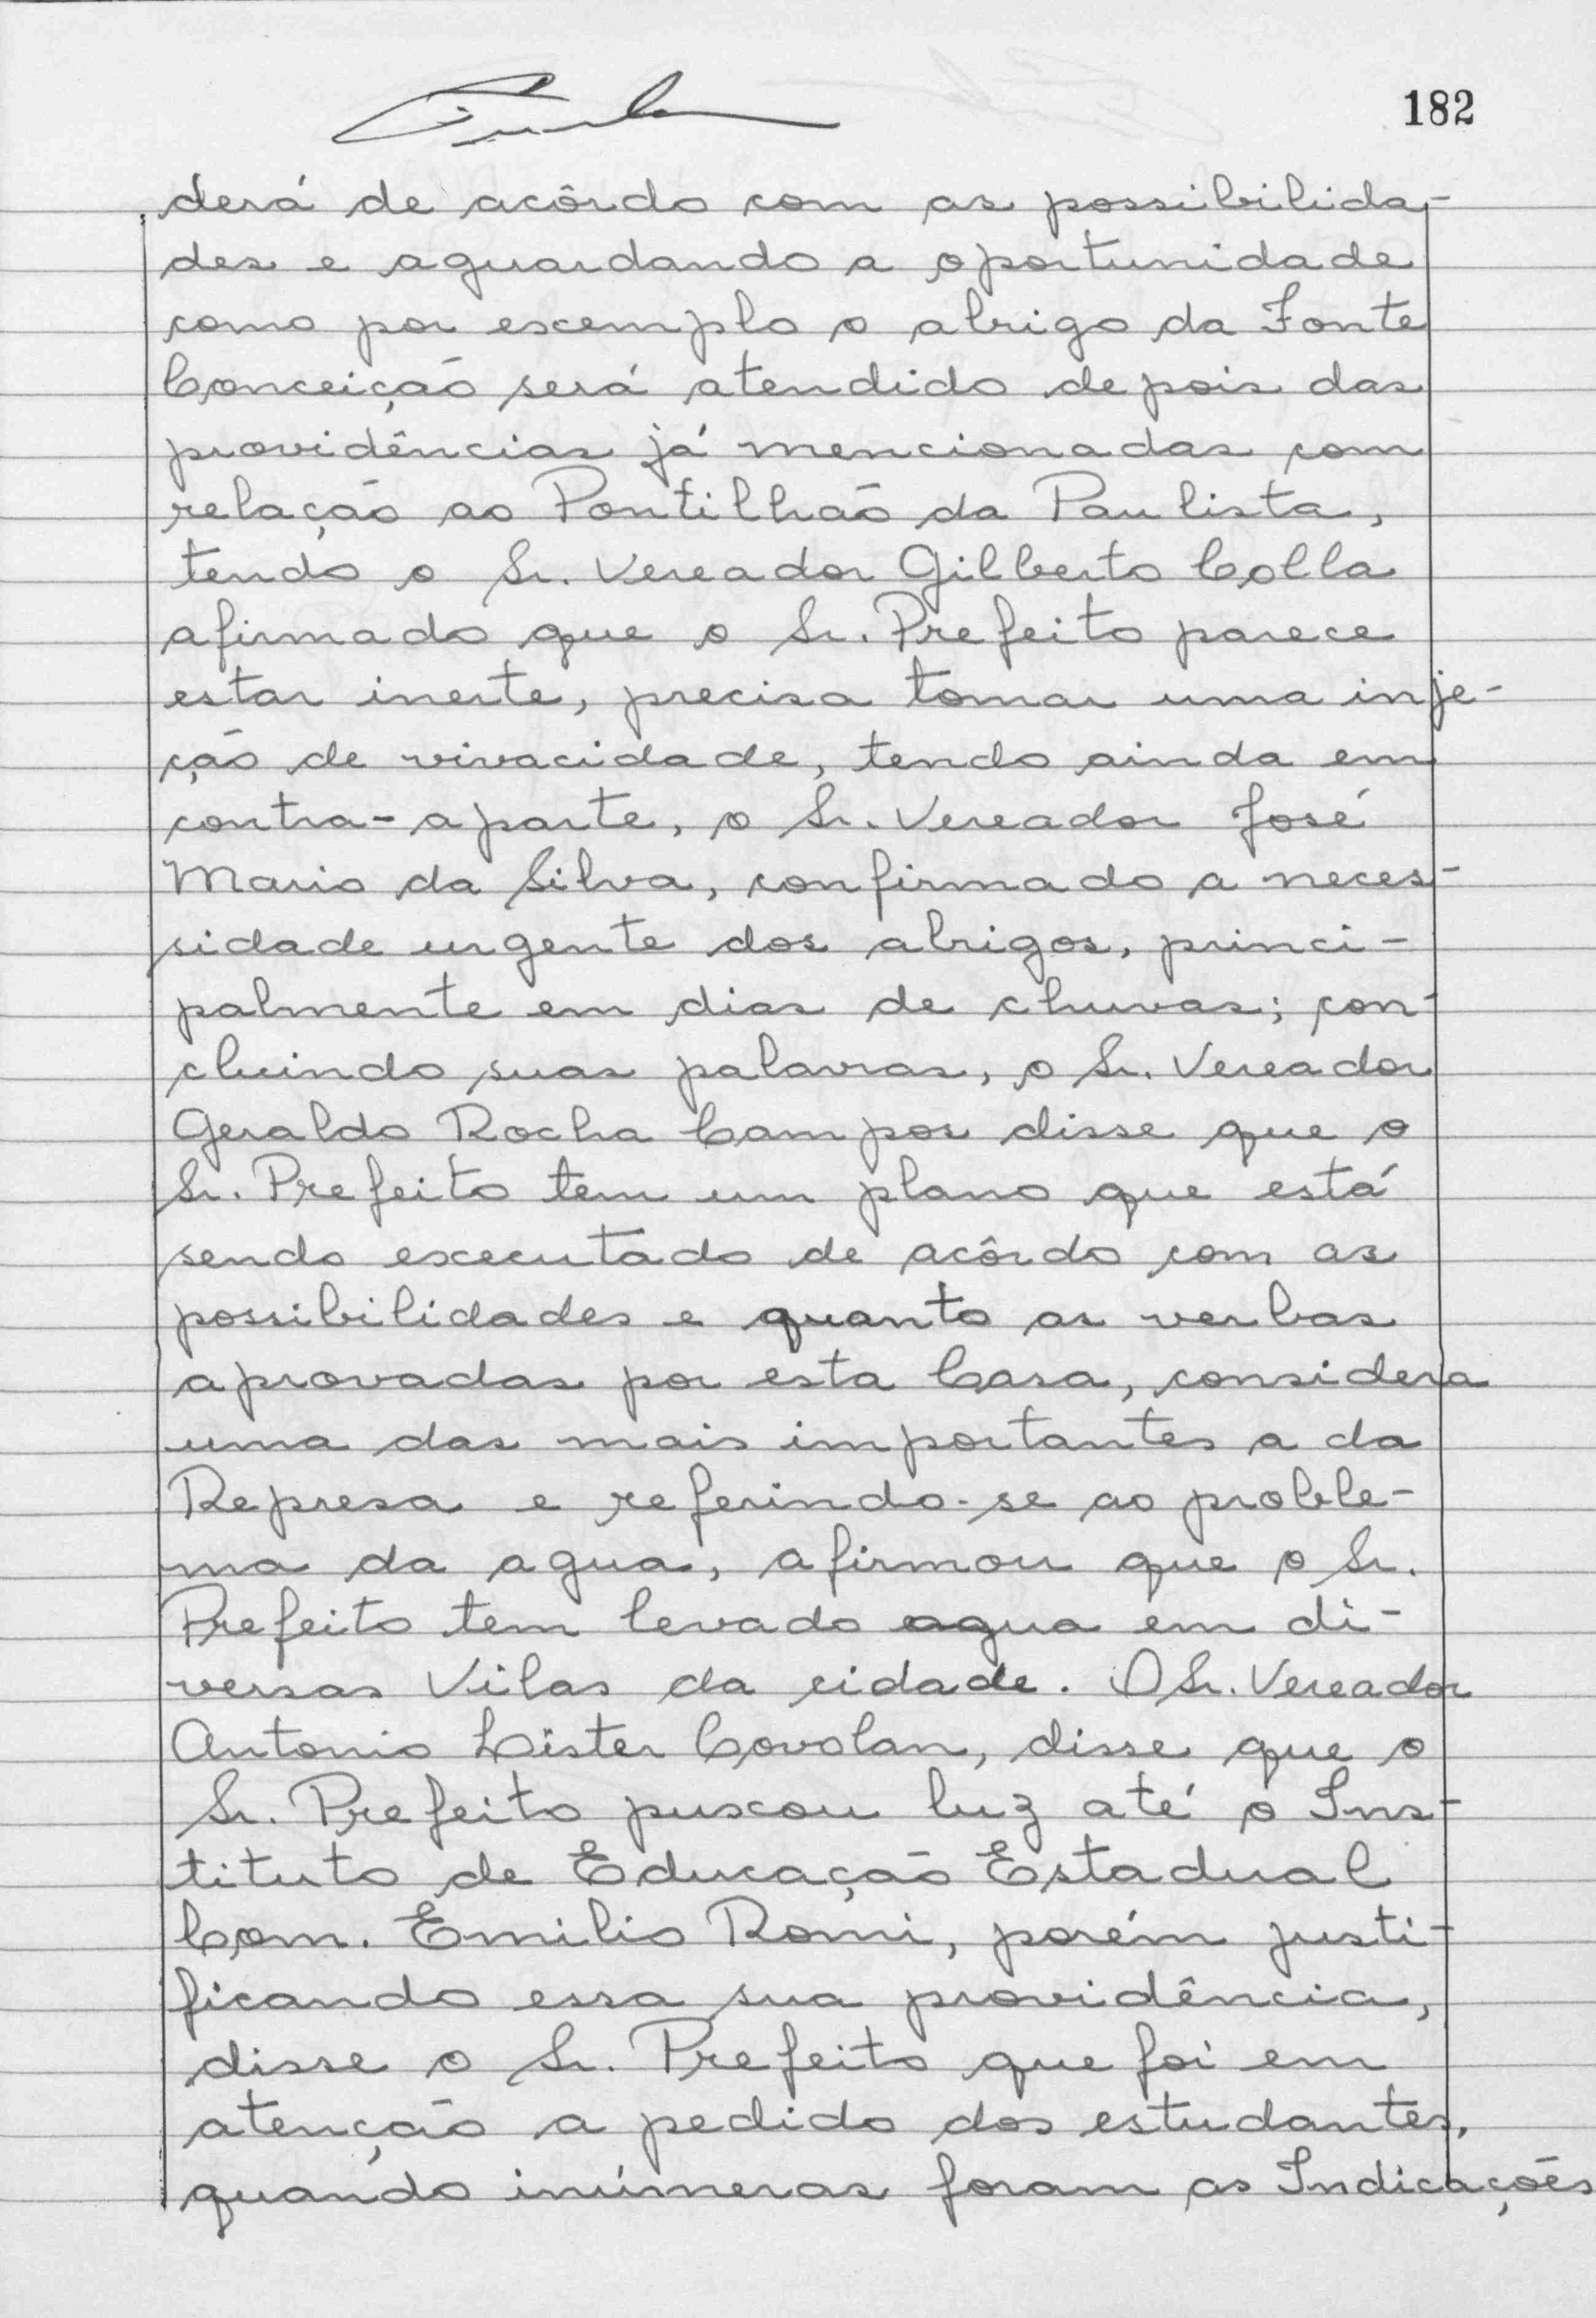 182
derá de acôrdo com as possibilida-
des e aguardando a oportunidade
como por excemplo o abrigo da Fonte
Conceição será atendido depois das
providências já mencionadas com
relação ao Pontilhão da Paulista,
tendo o Sr. Vereador Gilberto Colla
afirmado que o Sr. Prefeito parece
estar inerte, precisa tomar uma inje-
ção de vivacidade, tendo ainda em
contra-aparte, o Sr. Vereador José
Mario da Silva, confirmado a neces-
sidade urgente dos abrigos, princi-
palmente em dias de chuvas; con-
cluindo suas palavras, o Sr. Vereador
Geraldo Rocha Campos disse que o
Sr. Prefeito tem um plano que está
sendo executado de acôrdo com as
possibilidades e quanto as verbas
aprovadas por esta Casa, considera
uma das mais importantes a da
Represa e referindo-se ao proble-
ma da agua, afirmou que o Sr.
Prefeito tem levado agua em di-
versas Vilas da cidade. O Sr. Vereador
Antonio Lister Covolan, disse que o
Sr. Prefeito puscou luz até o Ins-
tituto de Educação Estadual
Com. Emilio Romi, porém justi-
ficando essa sua providência,
disse o Sr. Prefeito que foi em
atenção a pedido dos estudantes,
quando inúmeras foram as Indicações